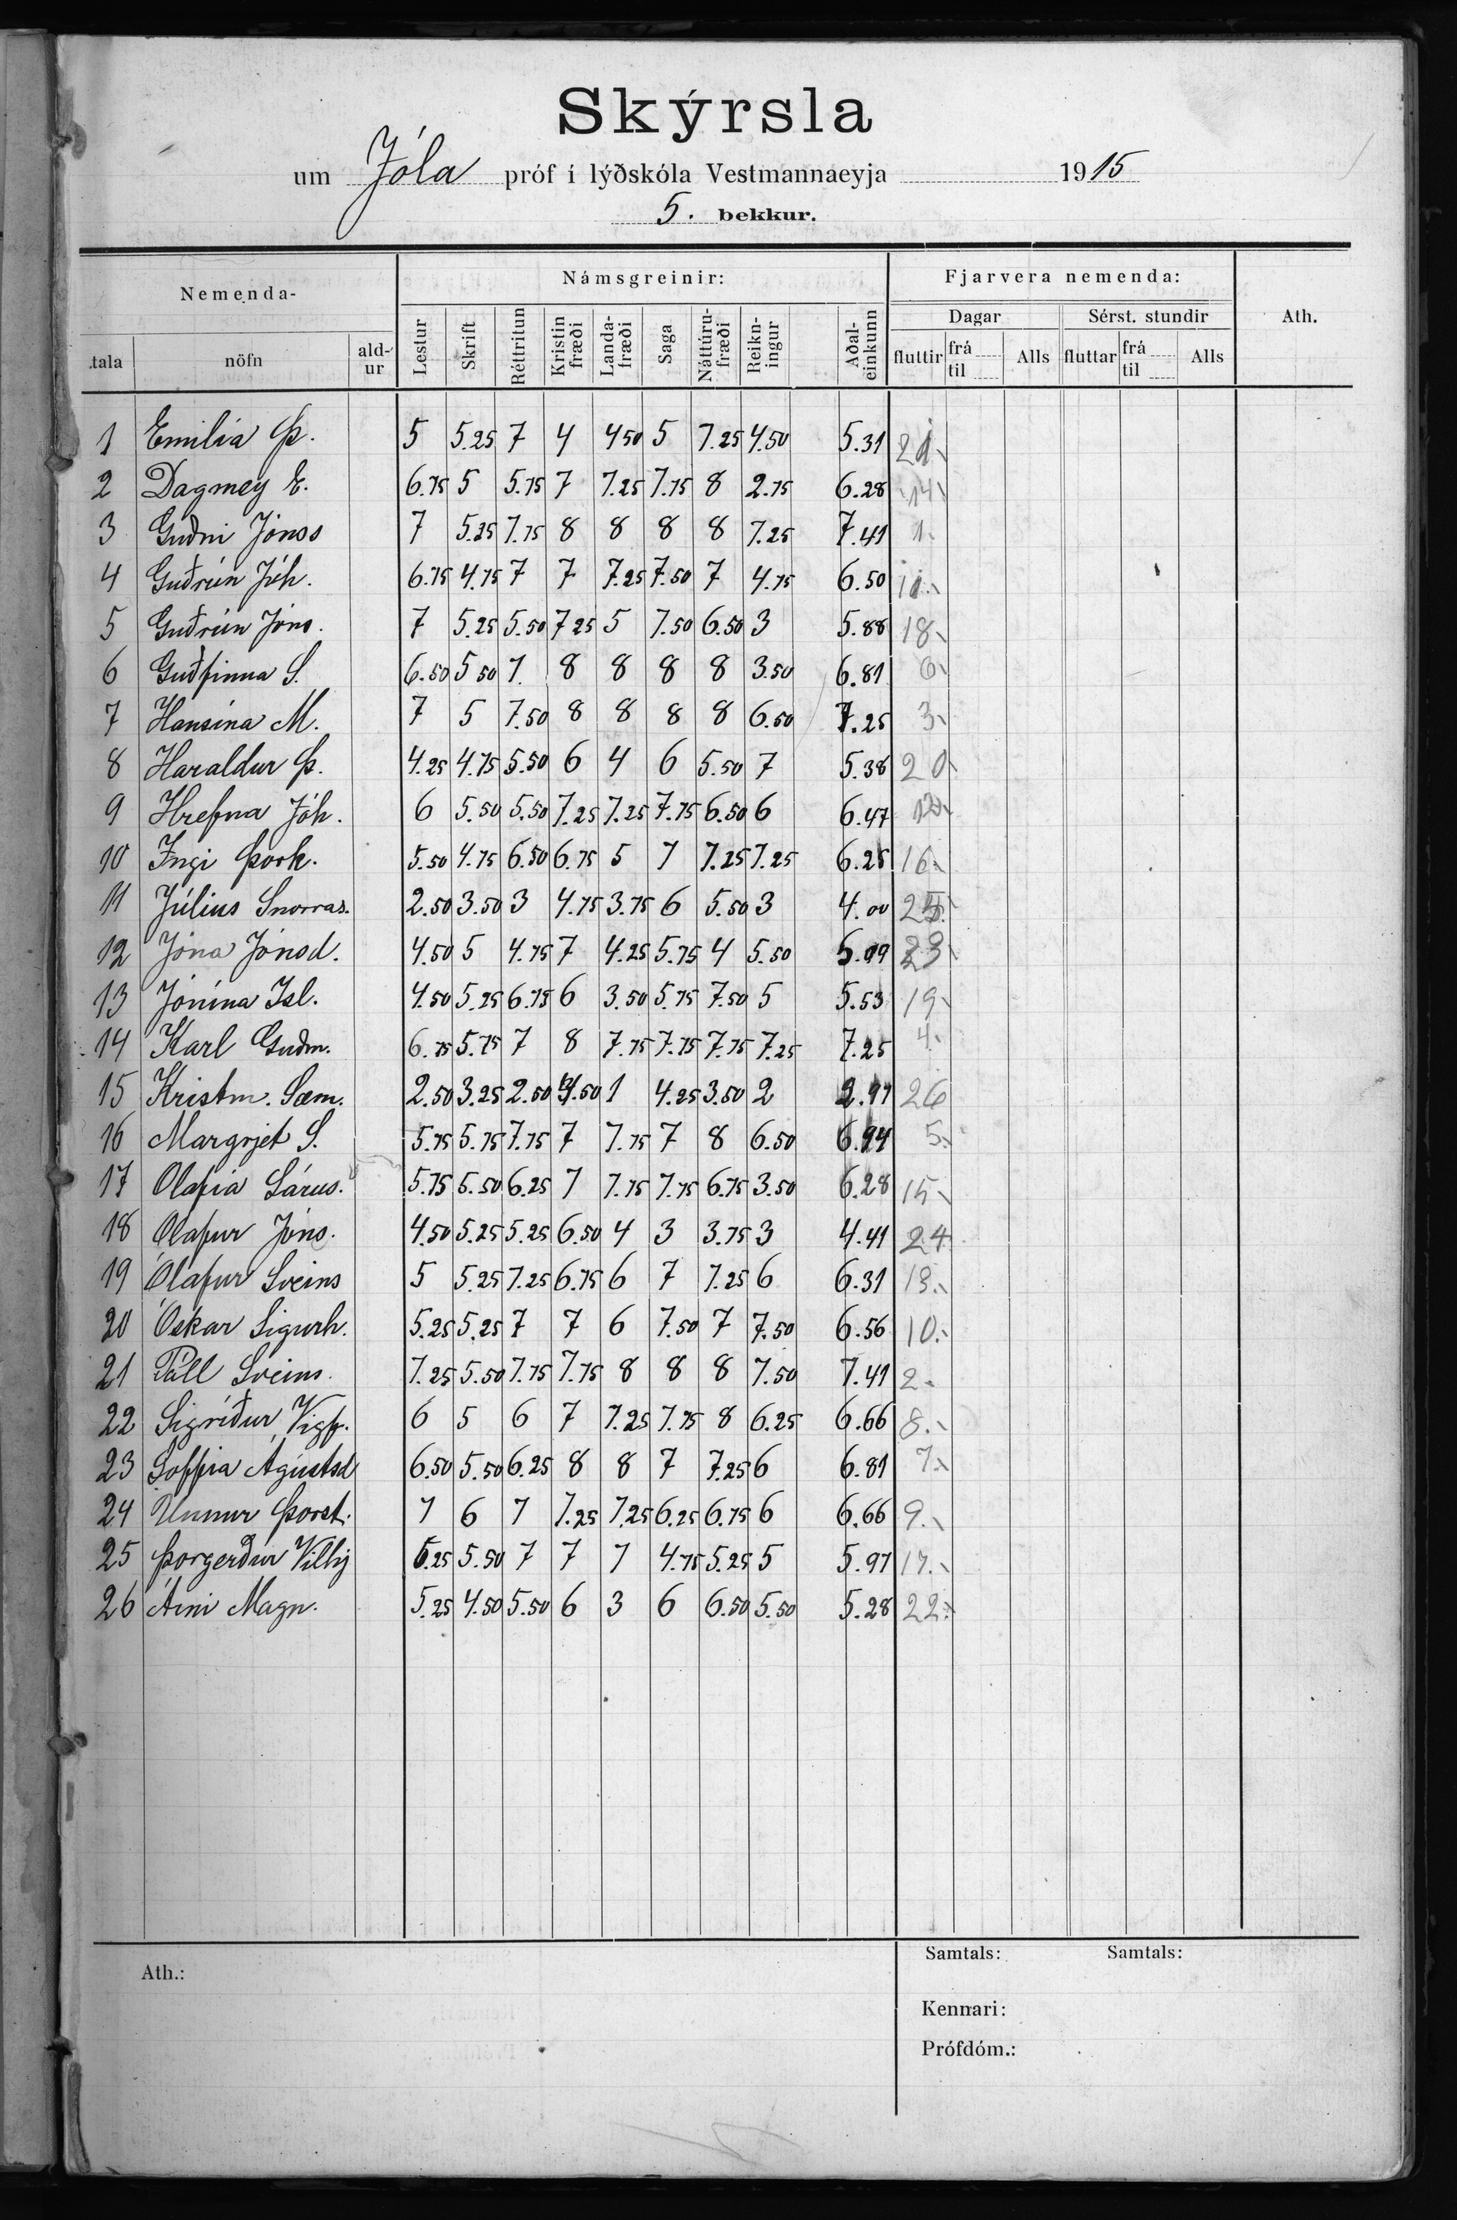 Skýrsla
um Jóla próf í lýðskóla Vestmannaeyja 1915
5. bekkur.
Nemenda- Námsgreinir: Fjarvera nemenda: Ath.
Dagar Sérst. stundir
tala nöfn ald-ur Lestur Skrift Réttritun Kristin fræði Landa-fræði Saga Náttúru-fræði Reikn-ingur Aðal-einkunn fluttir frá til Alls fluttar frá til Alls
1 Emilía Þ. 5 5.25 7 4 4.50 5 7.25 4.50 5.31 21.
2 Dagmey E. 6.75 5 5.75 7 7.25 7.75 8 2.75 6.28 14
3 Guðni Jónss 7 5.25 7.75 8 8 8 8 7.25 7.41 1.
4 Guðrún Jóh. 6.75 4.75 7 7 7.25 7.50 7 4.75 6.50 11.
5 Guðrún Jóns. 7 5.25 5.50 7.25 5 7.50 6.50 3 5.88 18.
6 Guðfinna S. 6.50 5.50 7. 8 8 8 8 3.50 6.81 6.
7 Hansína M. 7 5 7.50 8 8 8 8 6.50 7.25 3.
8 Haraldur Þ. 4.25 4.75 5.50 6 4 6 5.50 7 5.38 20
9 Hrefna Jóh. 6 5.50 5.50 7.25 7.25 7.75 6.50 6 6.47 12.
10 Ingi Þork. 5.50 4.75 6.50 6.75 5 7 7.25 7.25 6.25 16.
11 Júlíus Snorras. 2.50 3.50 3 4.75 3.75 6 5.50 3 4.00 25.
12 Jóna Jónsd. 4.50 5 4.75 7 4.25 5.75 4 5.50 5.09 23
13 Jónína Ísl. 4.50 5.25 6.75 6 3.50 5.75 7.50 5 5.53 19.
14 Karl Guðm. 6.75 5.75 7 8 7.75 7.75 7.75 7.25 7.25 4.
15 Kristm. Sæm. 2.50 3.25 2.50 4.50 1 4.25 3.50 2 2.97 26
16 Margrjet S. 5.75 5.75 7.75 7 7.75 7 8 6.50 6.94 5.
17 Olafía Lárus. 5.75 5.50 6.25 7 7.75 7.75 6.75 3.50 6.28 15.
18 Olafur Jóns. 4.50 5.25 5.25 6.50 4 3 3.75 3 4.41 24.
19 Ólafur Sveins 5 5.25 7.25 6.75 6 7 7.25 6 6.31 13.
20 Óskar Sigurh. 5.25 5.25 7 7 6 7.50 7 7.50 6.56 10.
21 Páll Sveins. 7.25 5.50 7.75 7.75 8 8 8 7.50 7.41 2.
22 Sigríður Vigf. 6 5 6 7 7.25 7.75 8 6.25 6.66 8.
23 Soffía Ágústsd 6.50 5.50 6.25 8 8 7 7.25 6 6.81 7.
24 Unnur Þorst. 7 6 7 7.25 7.25 6.25 6.75 6 6.66 9.
25 Þorgerður Vilhj 6.25 5.50 7 7 7 4.75 5.25 5 5.97 17.
26 Árni Magn. 5.25 4.50 5.50 6 3 6 6.50 5.50 5.28 22.
Samtals: Samtals:
Ath.:
Kennari:
Prófdóm.: